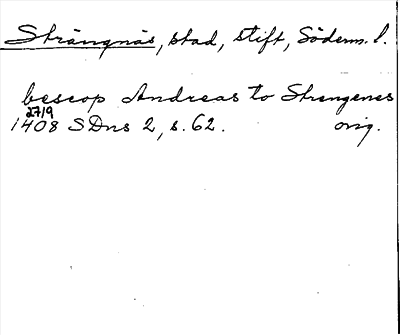 Strängnäs, stad, stift, Söderm. l.
bescop Andreas to Strengenes
27/9
1408 SDns 2, s. 62. orig.